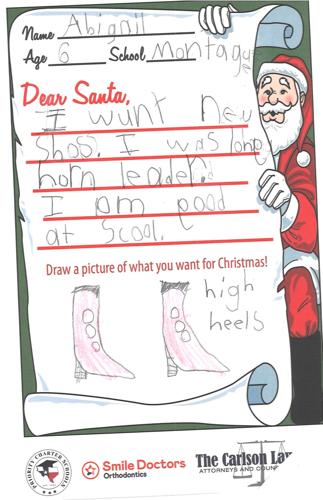 Name Abigail
Age 6 School Montague
Dear Santa,
I wunt new
Shos. I was long
horn leader.
I am good
at Scool.
Draw a picture of what you want for Christmas!
high
heels
PRIORITY CHARTER SCHOOLS
Smile Doctors
Orthodontics
The Carlson Law
ATTORNEYS AND COUN